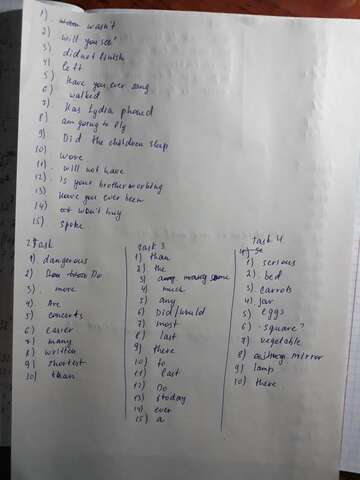 1) wasn't
2) will you see
3) did not finish
4) left
5) Have you ever sang
6) walked
7) Has Lydia phoned
8) am going to fly
9) Did the children sleep
10) wore
11) will not have
12) Is your brother working
13) Have you ever been
14) won't buy
15) spoke
2 Task
1) dangerous
2) Do
3) more
4) Are
5) concerts
6) easier
7) many
8) written
9) shortest
10) than
Task 3
1) than
2) the
3) some
4) much
5) any
6) Did/would
7) most
8) last
9) there
10) to
11) last
12) Do
13) today
14) ever
15) a
Task 4
1) serious
2) bed
3) carrots
4) jar
5) eggs
6) square?
7) vegetable
8) mirror
9) lamp
10) there